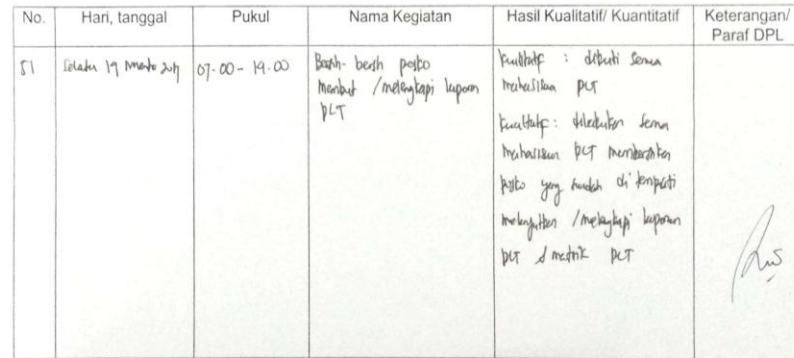 No. Hari, tanggal Pukul Nama Kegiatan Hasil Kualitatif/ Kuantitatif Keterangan/
Paraf DPL
51 Selasa 19 07.00 - 14.00
Bersih- bersih posko
membuat /melengkapi laporan
PLT
Kualitatif : diikuti semua
mahasiswa PLT
Kualitatif : dilakukan semua
mahasiswa PLT membersihkan
posko yang sudah di tempati
melanjutkan /melengkapi laporan
PLT & matrik PLT